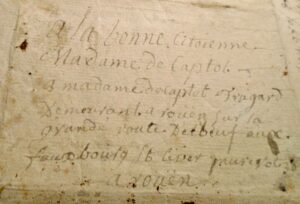 a la bonne Citoienne
Madame de Captot
madame decaptot
Demeurant a rouen sur la
grande route Delbeuf aux
faux bourg St Sever
a rouen